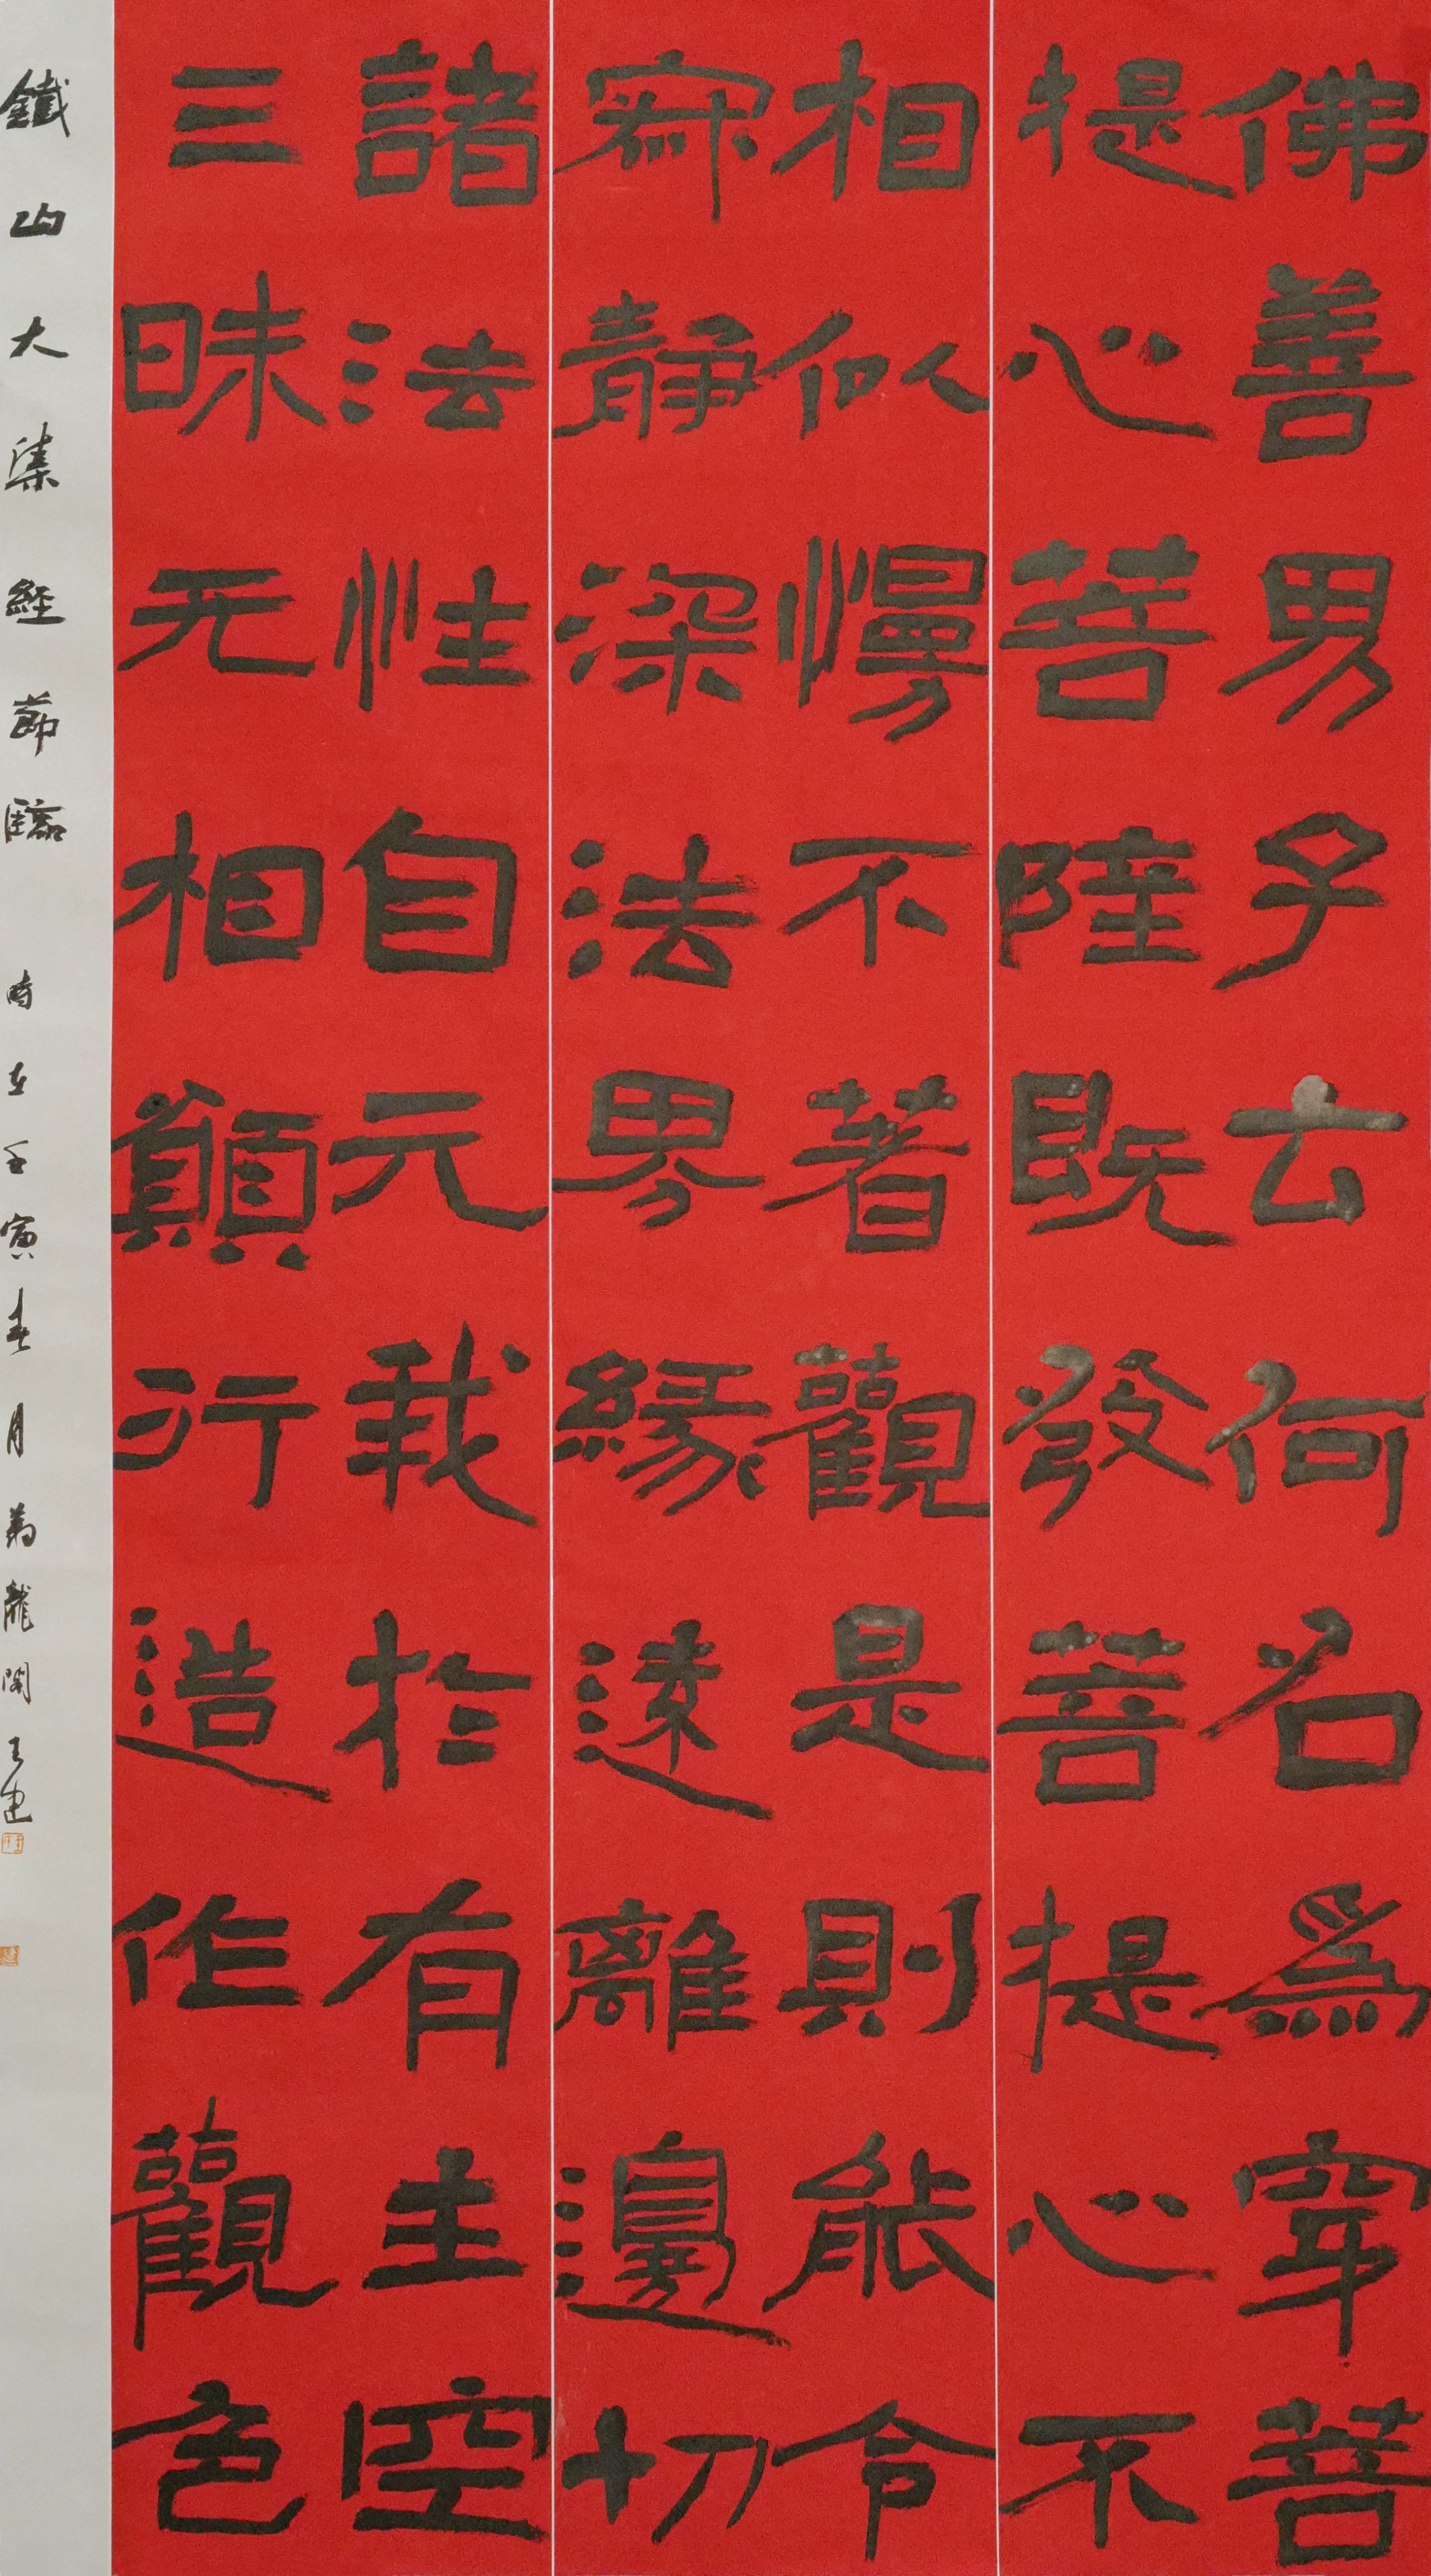 佛善男子云何名爲穿菩
提心菩陸既發菩提心不
相似慢不著觀是則能令
寂靜深法界緣遠離邊切
諸法性自元我於有主空
三昧无相顛行造作觀色
鐵山大集經節臨 時在壬寅春月 龍 王建